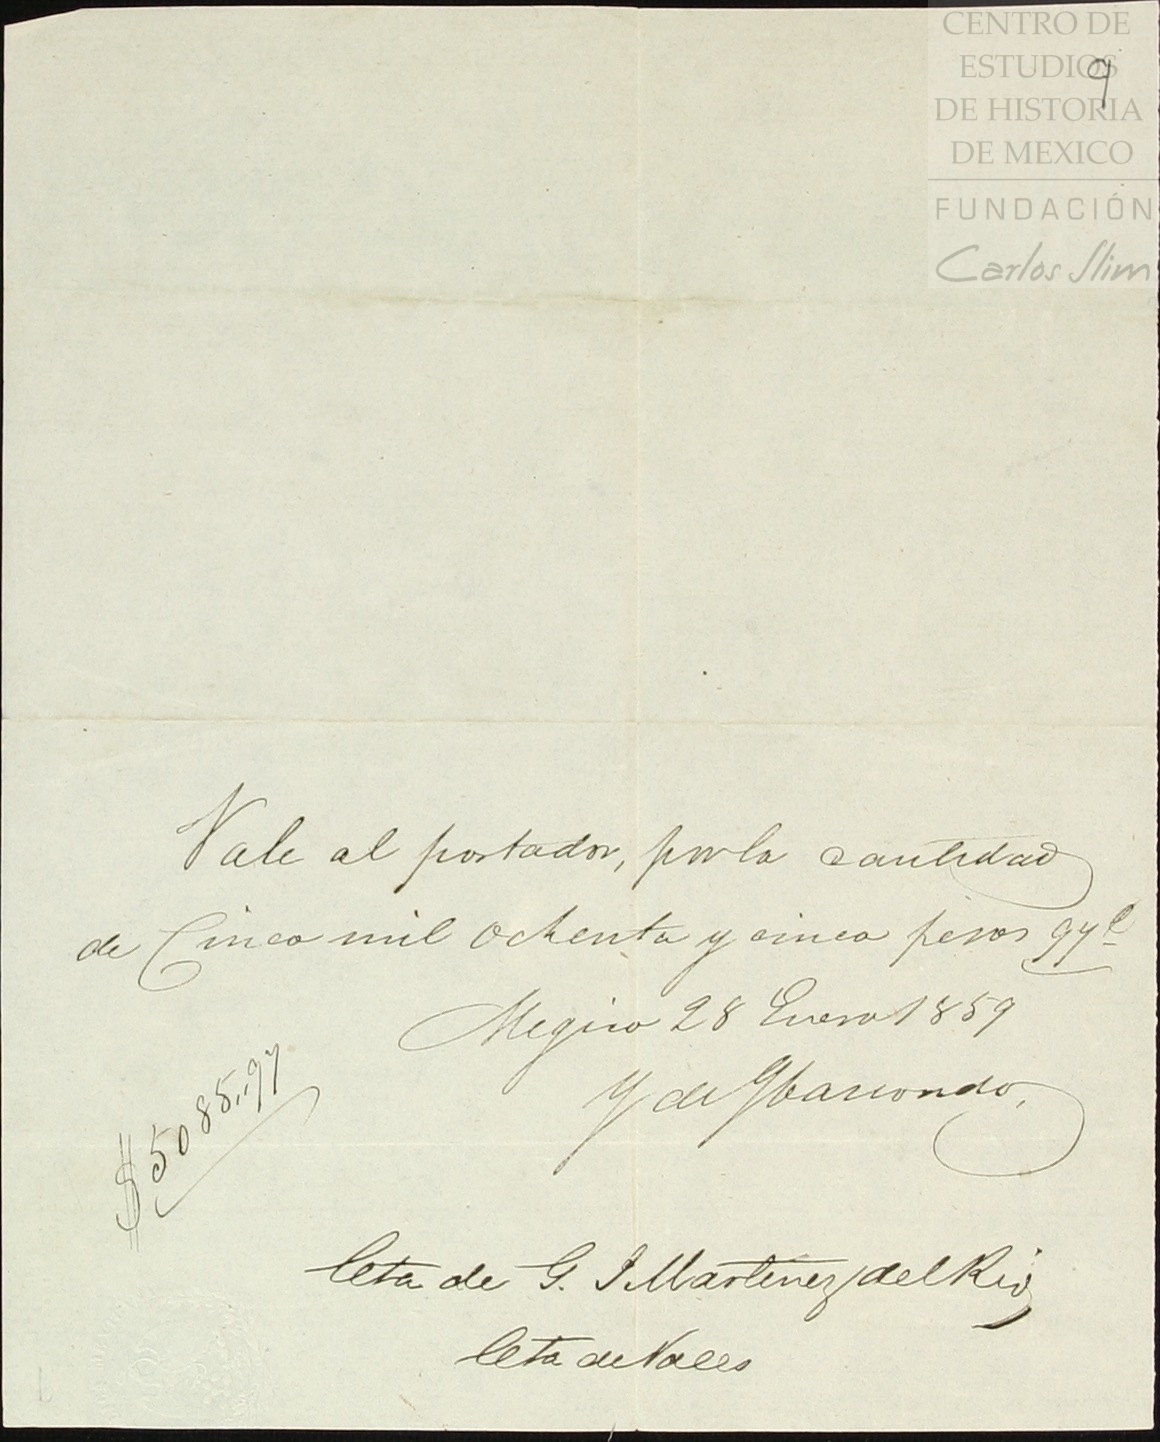 CENTRO DE
ESTUDIOS
DE HISTORIA
DE MEXICO
FUNDACIÓN
Carlos Slim
9
Vale al portador, por la cantidad
de Cinco mil ochenta y cinco pesos 97 c
Megico 28 Enero 1859
Y de Ybarrondo,
$5085,,97
Cta de G. J Martinez del Rio
Cta de Vales